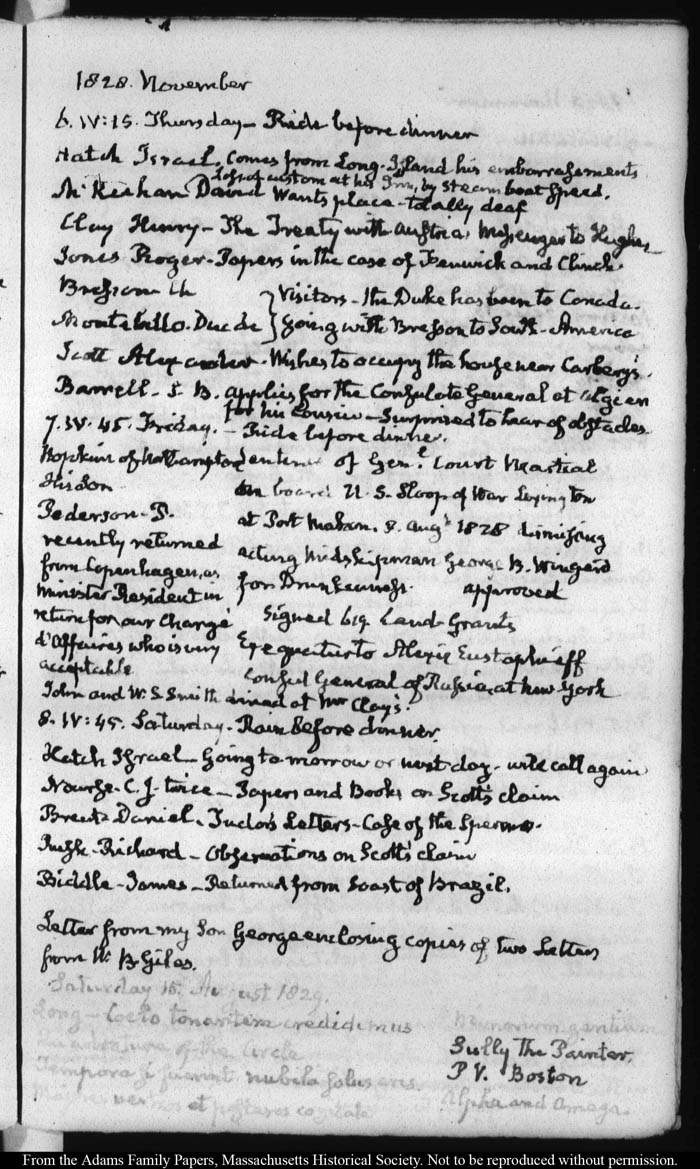 1828. November
6. IV:15. Thursday — Ride before dinner
Hatch Israel. Comes from Long-Island his embarrassments
Loss of custom at his Inn, by Steam boat speed.
McKeehan David Wants place — totally deaf
Clay Henry — The Treaty with Austria, Messenger to Hughes
Jones Roger — Papers in the case of Fenwick and Clinch
Bresson Ch
Montebello. Duc de } Visitors — the Duke has been to Canada.
going with Bresson to South-America
Scott Alexander. Wishes to occupy the house near Carbery's.
Barrell — S. B. applies for the Consulate General at Algiers
for his Cousin — Surprized to hear of obstacles
7. IV. 45. Friday. — Ride before dinner.
Hopkins of Northampton
His Son
Pederson — P.
recently returned
from Copenhagen, as
Minister Resident in
return for our Chargé
d'Affaires who is very
acceptable
Sentence of Genl. Court Martial
on board U. S. Sloop of War Lexington
at Port Mahon. 8. Augt 1828 dismissing
acting Midshipman George B. Wingerd
for Drunkenness. approved
Signed 619 Land-Grants
Exequatur to Alexis Eustaphieff
Consul General of Russia, at New York
John and W. S. Smith dined at Mr Clay's.
8. IV:45. Saturday. Rain before dinner
Hatch Israel — Going to morrow or next day — will call again
Nourse. C. J. twice — Papers and Books on Scott's claim
Brent Daniel. Tudor's Letters — Case of the Spermo.
Rush — Richard — Observations on Scott's claim
Biddle — James — Returned from Coast of Brazil.
Letter from my Son George enclosing copies of two Letters
from W. B. Giles.
Saturday 15. August 1829.
Long — Coelo tonantem credidimus
of the Circle
Tempora si fuerint nubila solus eris
et
gentium
Sully the Painter.
P V. Boston
Alpha and Omega
From the Adams Family Papers, Massachusetts Historical Society. Not to be reproduced without permission.